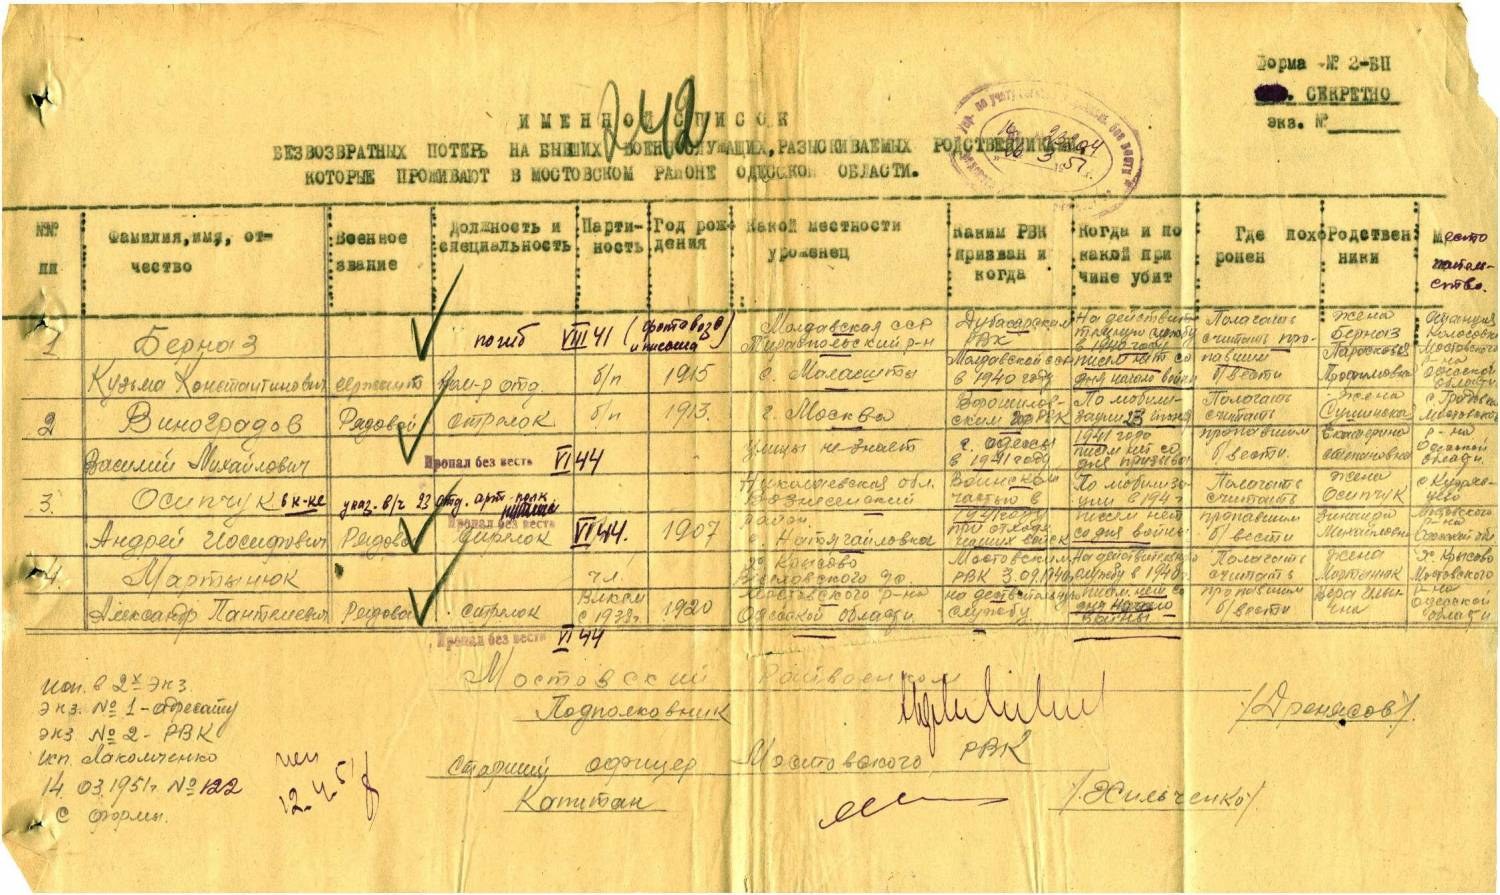 Форма № 2-БП
СЕКРЕТНО
экз. №
242
ИМЕННОЙ СПИСОК
БЕЗВОЗВРАТНЫХ ПОТЕРЬ НА БЫВШИХ ВОЕННОСЛУЖАЩИХ, РАЗЫСКИВАЕМЫХ РОДСТВЕННИКАМИ,
КОТОРЫЕ ПРОЖИВАЮТ В МОСТОВСКОМ РАЙОНЕ ОДЕССКОЙ ОБЛАСТИ.
№№ пп
Фамилия, имя, от-
чество
Военное
звание
Должность и
специальность
Парти-
ность
Год рож-
дения
Какой местности
уроженец
Каким РВК
призван и
когда
Когда и по
какой при
чине убит
Где похо
ронен
Родствен
ники
Место
житель-
ство.
1
Берназ
Кузьма Константинович
сержант
погиб VIII 41 (фотовоз
и письма)
Ком-р отд.
б/п
1915
Молдавская ССР
Тираспольский р-н
с. Малаешты
Дубасарским
РВК
Молдавской ССР
в 1940 году
На действит
службу
в 1940 году
писем нет со
дня начала войны
Полагать
считать про-
павшим
б/вести
жена
Берназ
Параскева
Трофимовна
Мостовского
р-на
Одесской
области
2
Виноградов
Василий Михайлович
Рядовой
Стрелок
б/п
1913.
Пропал без весть VI 44
г. Москва
улицы не знает
Ворошилов-
ским РВК
г. Одессы
в 1941 году
По мобили-
зации 23 июня
1941 года
писем нет со
дня призыва
Полагать
считать
пропавшим
б/вести.
жена
Сушинская
Екатерина
Степановна
Мостовского
р-на
Одесской
области.
3.
Осипчук в к-ке
Андрей Иосифович
указ. в/ч 23 отд. арт. полк
Рядовой
Пропал без весть
стрелок
VI 44.
1907
Николаевская обл.
Вознесенский
район.
с. Натягайловка
Воинской
частью в
1941 году
при отходе
наших войск
По мобилиза-
ции в 1941
писем нет
со дня войны
Полагать
считать
пропавшим
б/вести
жена
Осипчук
Зинаида
Михайловна
Мостовского
р-на
Одесской обл
4.
Мартынюк
Александр Пантелеевич
Рядовой
стрелок
чл.
ВЛКСМ
с 1938г
1920
Пропал без вести VI 44
Крысово
Мостовского р-на
Одесской области
Мостовским
РВК 3.09.1940г
на действительную
службу
На действительной
службу в 1940г
писем нет со
дня начала
войны
Полагать
считать
пропавшим
б/вести
жена
Мартынюк
Вера
х. Крысово
Мостовского
р-на
Одесской
области
Исп. в 2х экз.
экз. № 1 - адресату
экз № 2 - РВК
исп. Лакомченко
14.03.1951г № 122
с формы.
12.4.51
Мостовский Райвоенком
Подполковник
/Дренясов/.
Старший офицер Мостовского РВК
Капитан
/Жильченко/